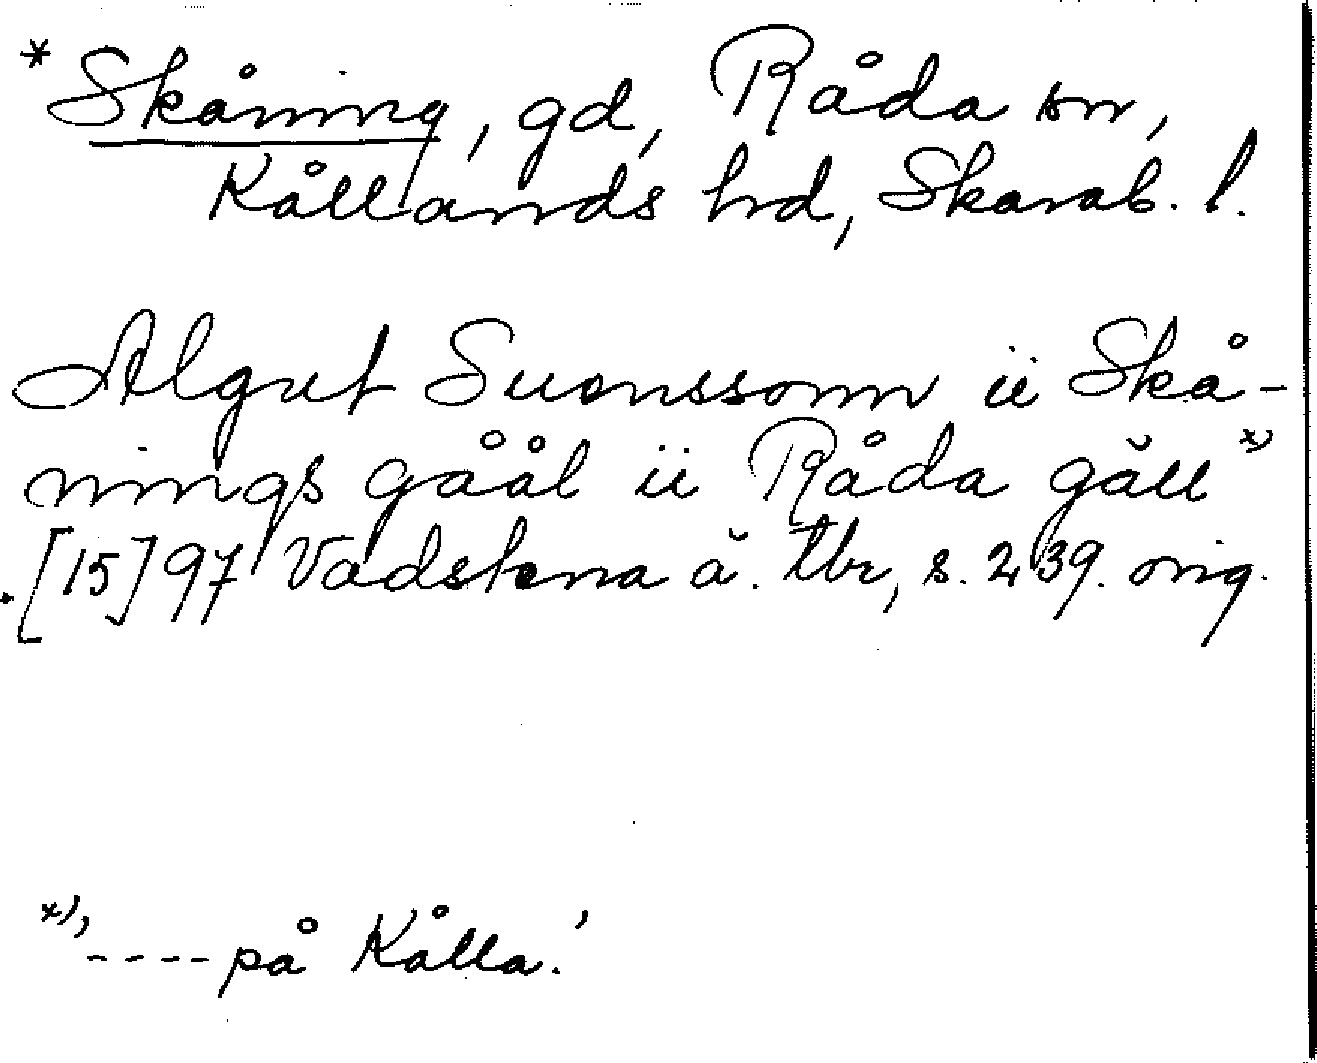 * Skåning, gd, Råda sn,
Kållands hd, Skarab. l.
Algut Suenssonn ii Skå-
nings gåål ii Råda gäll x)
[15]97 Vadstena ä. tbr, s. 239. orig.
x) '---- på Kålla.'